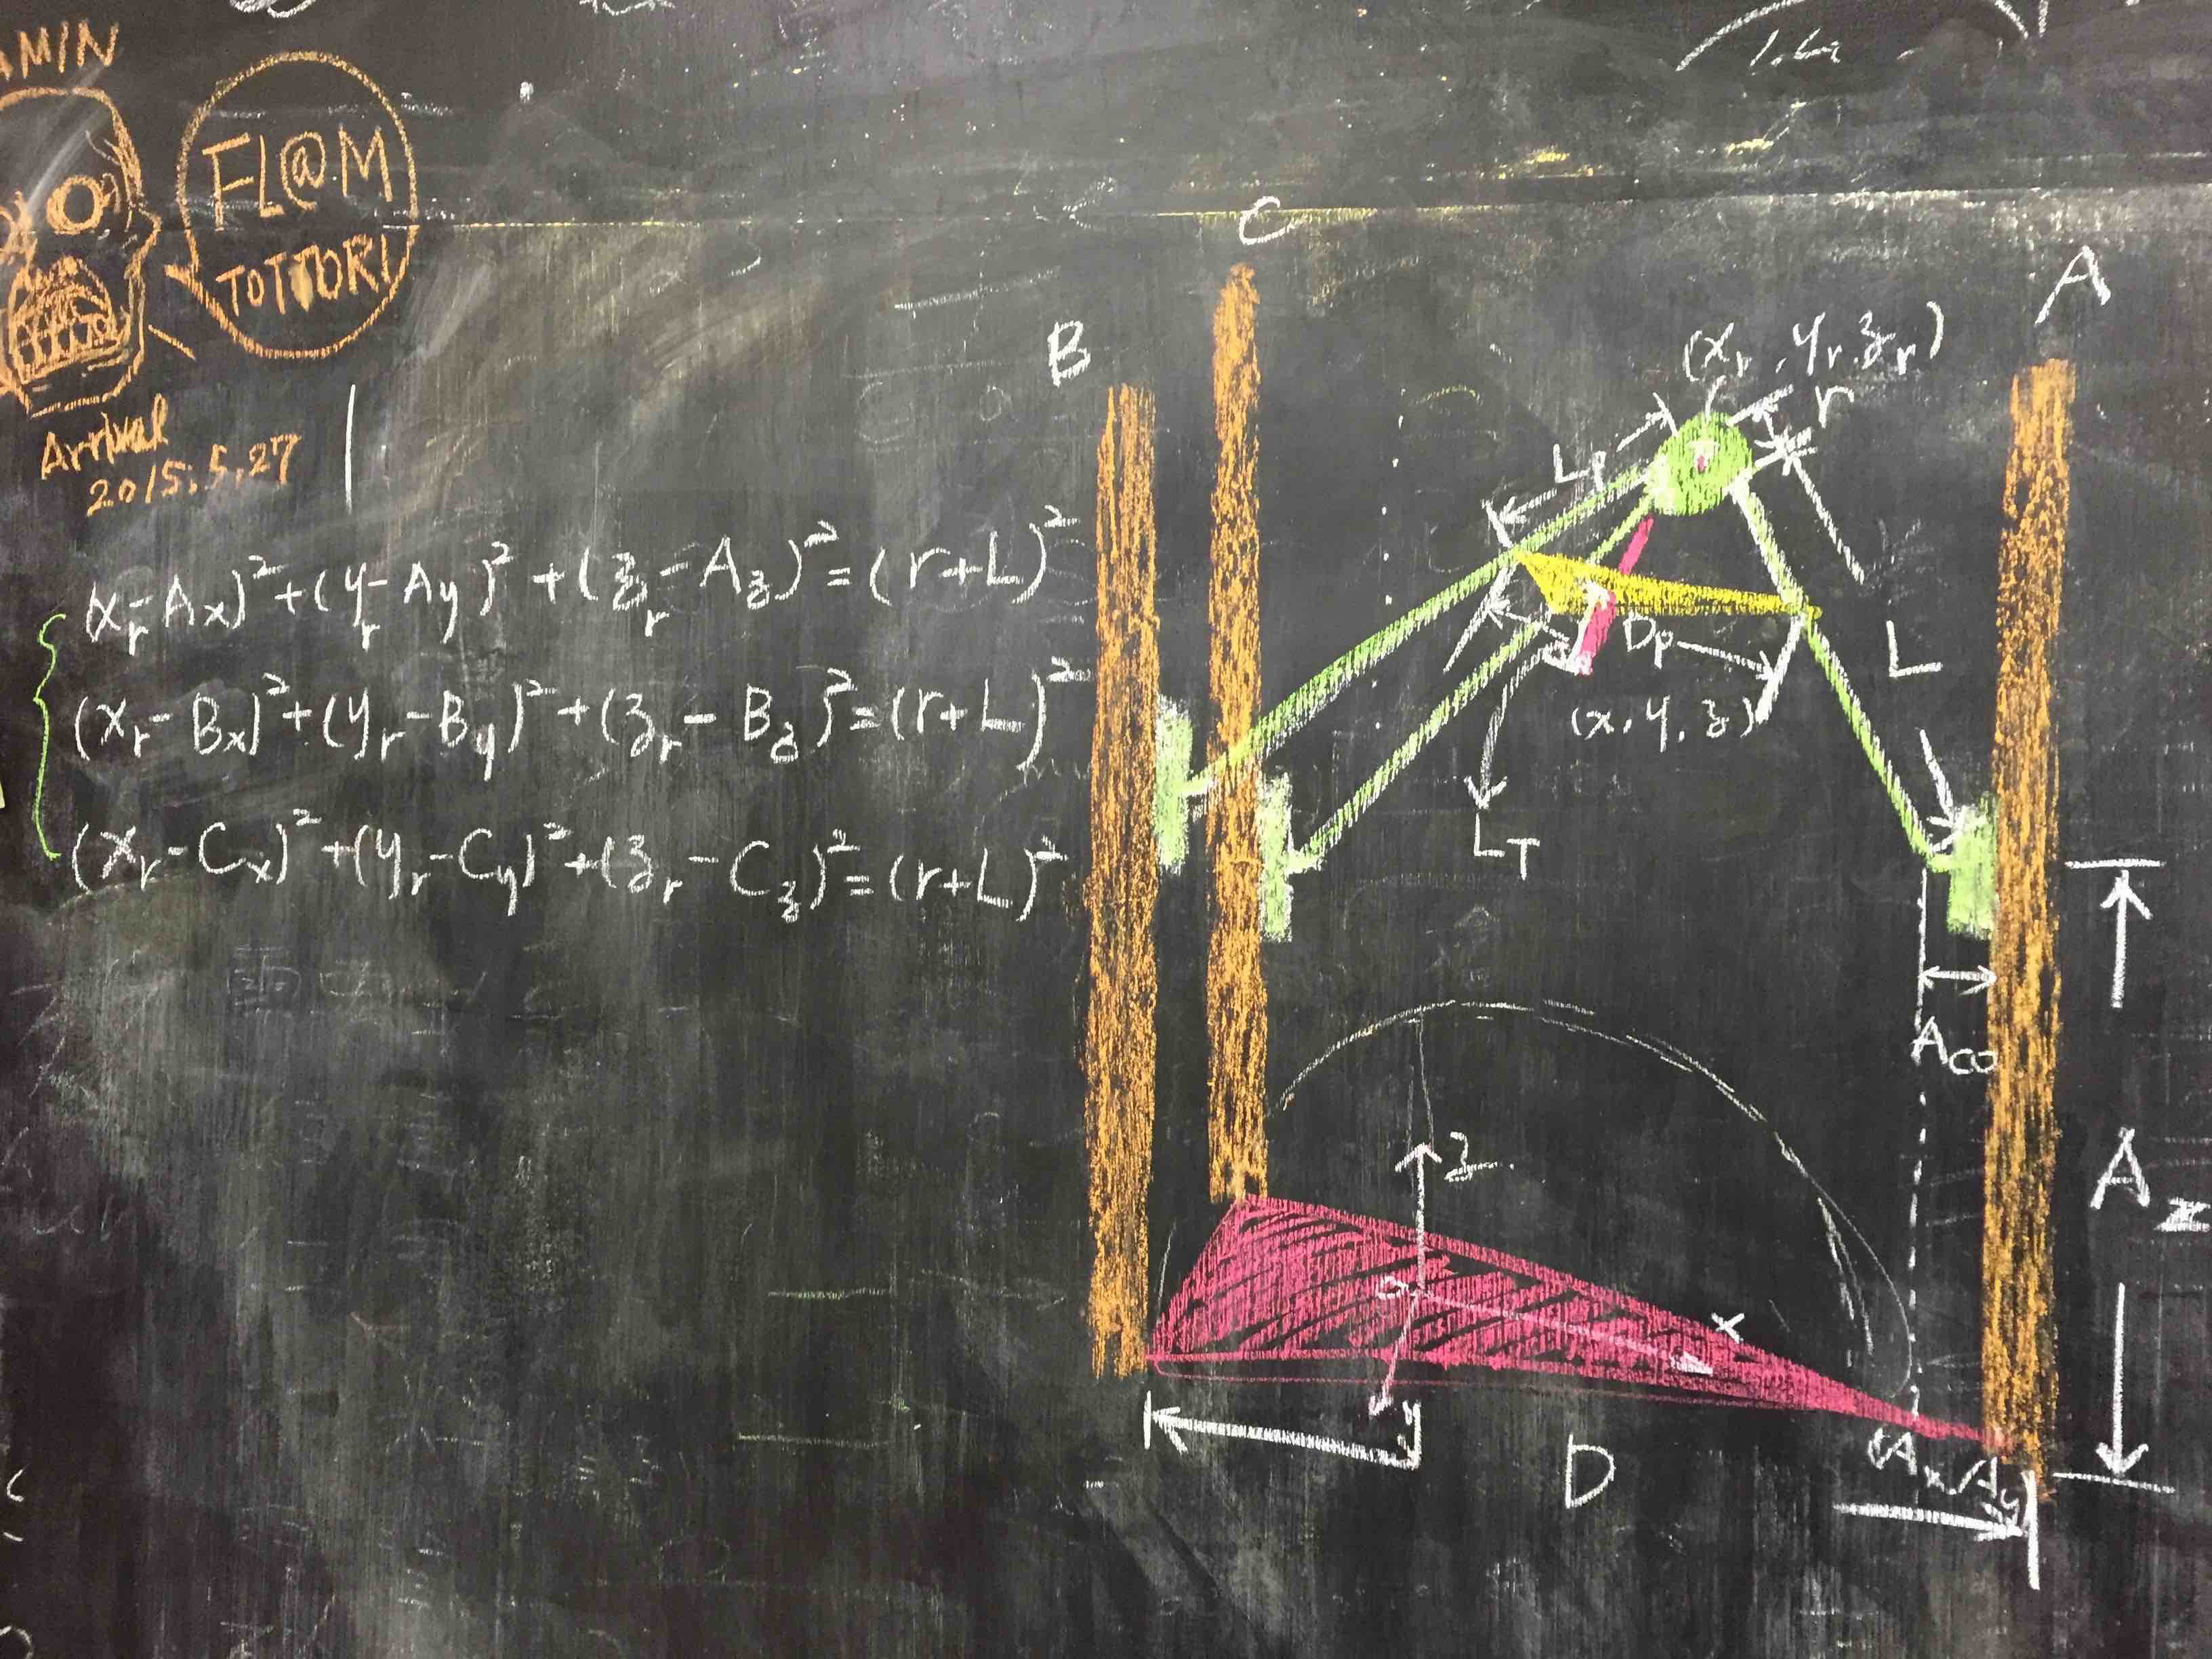 AMIN
FL@M
TOTTORI
Arrival
2015.5.27
(xr-Ax)²+(yr-Ay)²+(zr-Az)²=(r+L)²
(xr-Bx)²+(yr-By)²+(zr-Bz)²=(r+L)²
(xr-Cx)²+(yr-Cy)²+(zr-Cz)²=(r+L)²
C
B
A
(xr,yr,zr)
r
Lp
L
Dp
(x,y,z)
LT
Aco
Az
z
x
y
D
(Ax,Ay